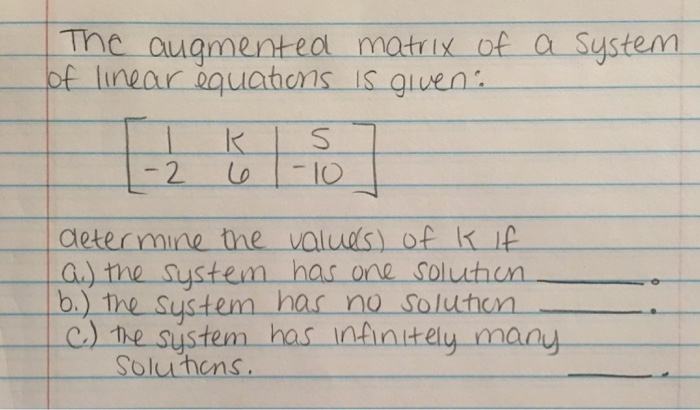 The augmented matrix of a system
of linear equations is given:
1 K | 5
-2 6 | -10
determine the value(s) of K if
a.) the system has one solution ______.
b.) the system has no solution ______.
c.) the system has infinitely many
solutions. ______.